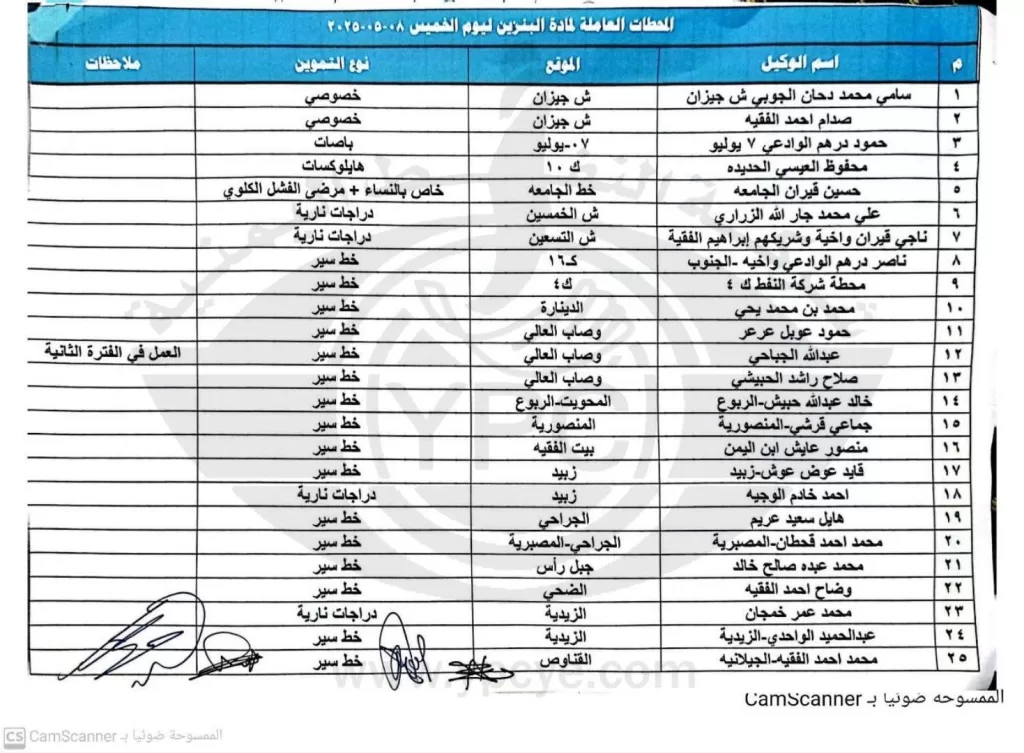 المحطات العاملة لمادة البنزين ليوم الخميس ٠٨-٠٥-٢٠٢٥
م اسم الوكيل الموقع نوع التموين ملاحظات
١ سامي محمد دحان الجوبي ش جيزان ش جيزان خصوصي
٢ صدام احمد الفقيه ش جيزان خصوصي
٣ حمود درهم الوادعي ٧ يوليو ٠٧-يوليو باصات
٤ محفوظ العيسي الحديده ك ١٠ هايلوكسات
٥ حسين قيران الجامعه خط الجامعه خاص بالنساء + مرضى الفشل الكلوي
٦ علي محمد جار الله الزراري ش الخمسين دراجات نارية
٧ ناجي قيران واخية وشريكهم إبراهيم الفقية ش التسعين دراجات نارية
٨ ناصر درهم الوادعي واخيه -الجنوب كـ١٦ خط سير
٩ محطة شركة النفط ك ٤ ك٤ خط سير
١٠ محمد بن محمد يحي الدينارة خط سير
١١ حمود عوبل عرعر وصاب العالي خط سير
١٢ عبدالله الجباحي وصاب العالي خط سير العمل في الفترة الثانية
١٣ صلاح راشد الحبيشي وصاب العالي خط سير
١٤ خالد عبدالله حبيش-الربوع المحويت-الربوع خط سير
١٥ جماعي قرشي-المنصورية المنصورية خط سير
١٦ منصور عايش ابن اليمن بيت الفقيه خط سير
١٧ قايد عوض عوش-زبيد زبيد خط سير
١٨ احمد خادم الوجيه زبيد دراجات نارية
١٩ هايل سعيد عريم الجراحي خط سير
٢٠ محمد احمد قحطان-المصبرية الجراحي-المصبرية خط سير
٢١ محمد عبده صالح خالد جبل رأس خط سير
٢٢ وضاح احمد الفقيه الضحي خط سير
٢٣ محمد عمر خمجان الزيدية دراجات نارية
٢٤ عبدالحميد الواحدي-الزيدية الزيدية خط سير
٢٥ محمد احمد الفقيه-الجيلانيه القناوص خط سير
YPC
www.ypcye.com
الممسوحة ضوئيا بـ CamScanner
CS CamScanner الممسوحة ضوئيا بـ